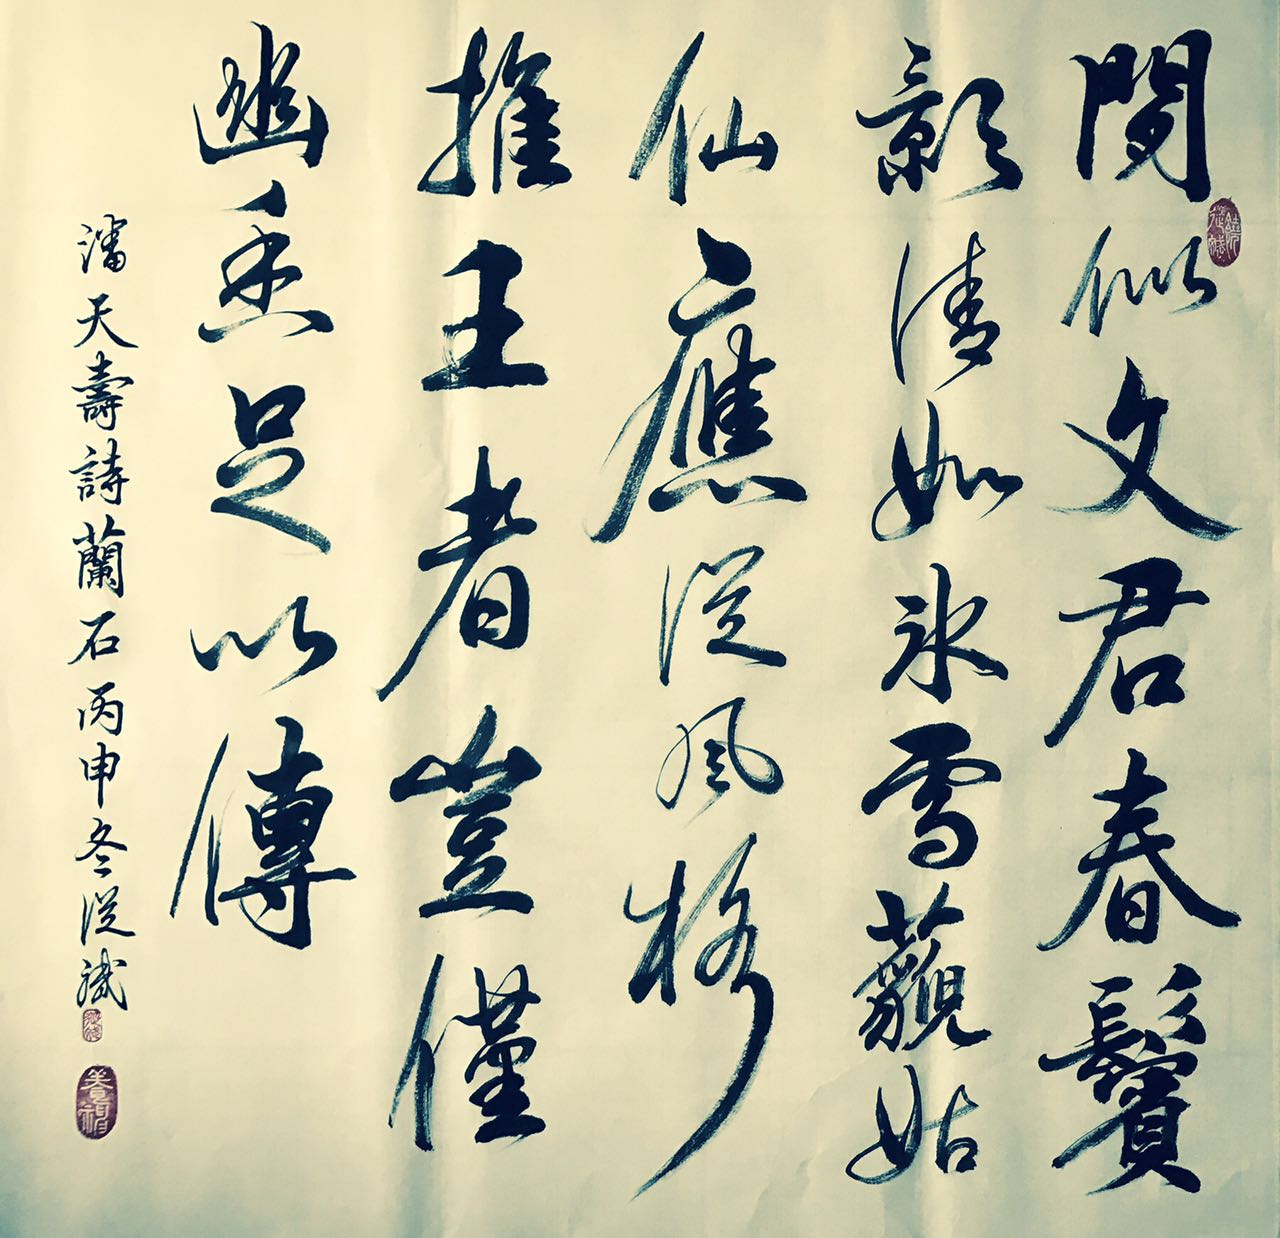 閔似文君春鬢
影清如冰雪藐姑
仙應從風格
推王者豈僅
幽香足以傳
潘天壽詩蘭石丙申冬從斌